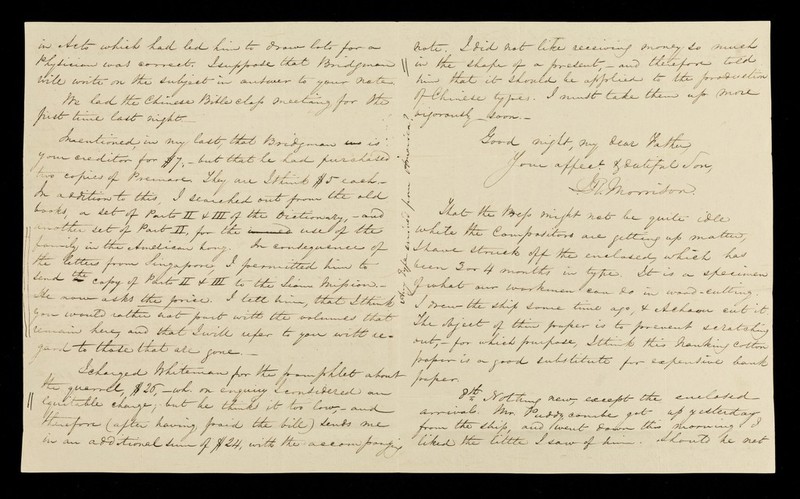 in Acts which had led him to draw lots for a
Physician was correct. I suppose that Bridgman
will write on the subject in answer to your note
We had the Chinese Bible class meeting for the
first time last night
I mentioned, in my last, that Bridgman is
your creditor for $7,– but that he had purchased
two copies of Premare. They are I think $5 each.–
In addition to this, I searched out from the old
books, a set of Part II & III of the Dictionary,– and
another set of Part II, for the use of the
family in the American hong. In consequence of
the letters from Singapore, I permitted him to
send the copy of Parts II & III to the Siam Mission.–
He now asks the price. I tell him, that I think
you would rather not part with the volumes that
remain here, and that I will refer to you with re-
gard to those that are gone.–
I charged Whiteman for the pamphlet about
the quarrel, $26,– wh. on enquiry I considered an
equitable charge; but he thinks it too low,– and
therefore (after having paid the bill) sends me
in an additional sum of $24, with the accompanying
note. I did not like receiving money so much
in the shape of a present,– and therefore told
him that it should be applied to the production
of Chinese types. I must take them up more
vigorously soon.–
Good night, my dear Father
Your affect. & dutiful Son,
J.R. Morrison
That the Press might not be quite idle
while the Compositors are getting up matter,
I have struck off the enclosed, which has
been 3 or 4 months in type. It is a specimen
of what our workmen can do in wood-cutting.
I drew the ship some time ago, & Achaou cut it.
The object of this paper is to prevent scratching
out,– for which purpose, I think this Nanking cotton
paper is a good substitute for expensive bank
paper.
8th. Nothing new, except the enclosed
arrivals. Mr. Puddicombe got up yesterday
from the ship, and went down this morning. I
liked the little I saw of him. Should he not